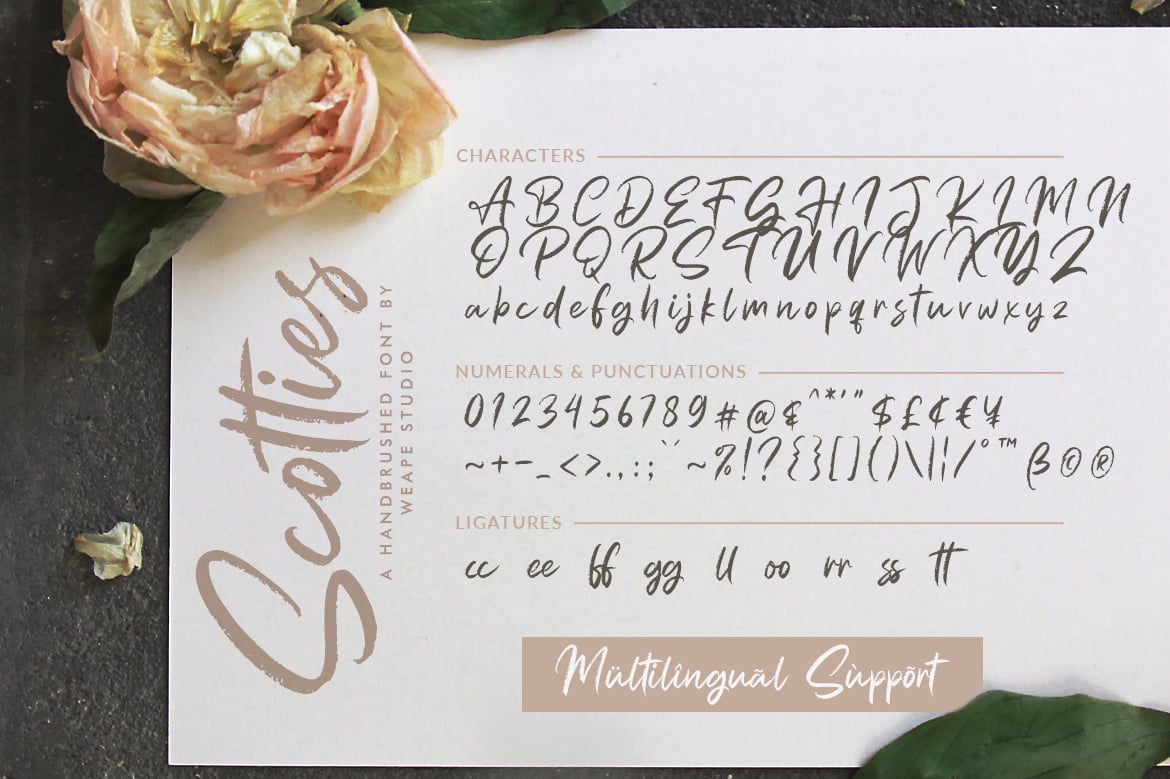 Scotties
A HANDBRUSHED FONT BY
WEAPE STUDIO
CHARACTERS
A B C D E F G H I J K L M N
O P Q R S T U V W X Y Z
a b c d e f g h i j k l m n o p q r s t u v w x y z
NUMERALS & PUNCTUATIONS
0 1 2 3 4 5 6 7 8 9 # @ & ^ * ' " $ £ ¢ € ¥
~ + - _ < > . , : ; ` ~ % ! ? { } [ ] ( ) \ | ¦ / ° ™ ß © ®
LIGATURES
cc ee ff gg ll oo rr ss tt
Mültilînguãl Sùppõrt